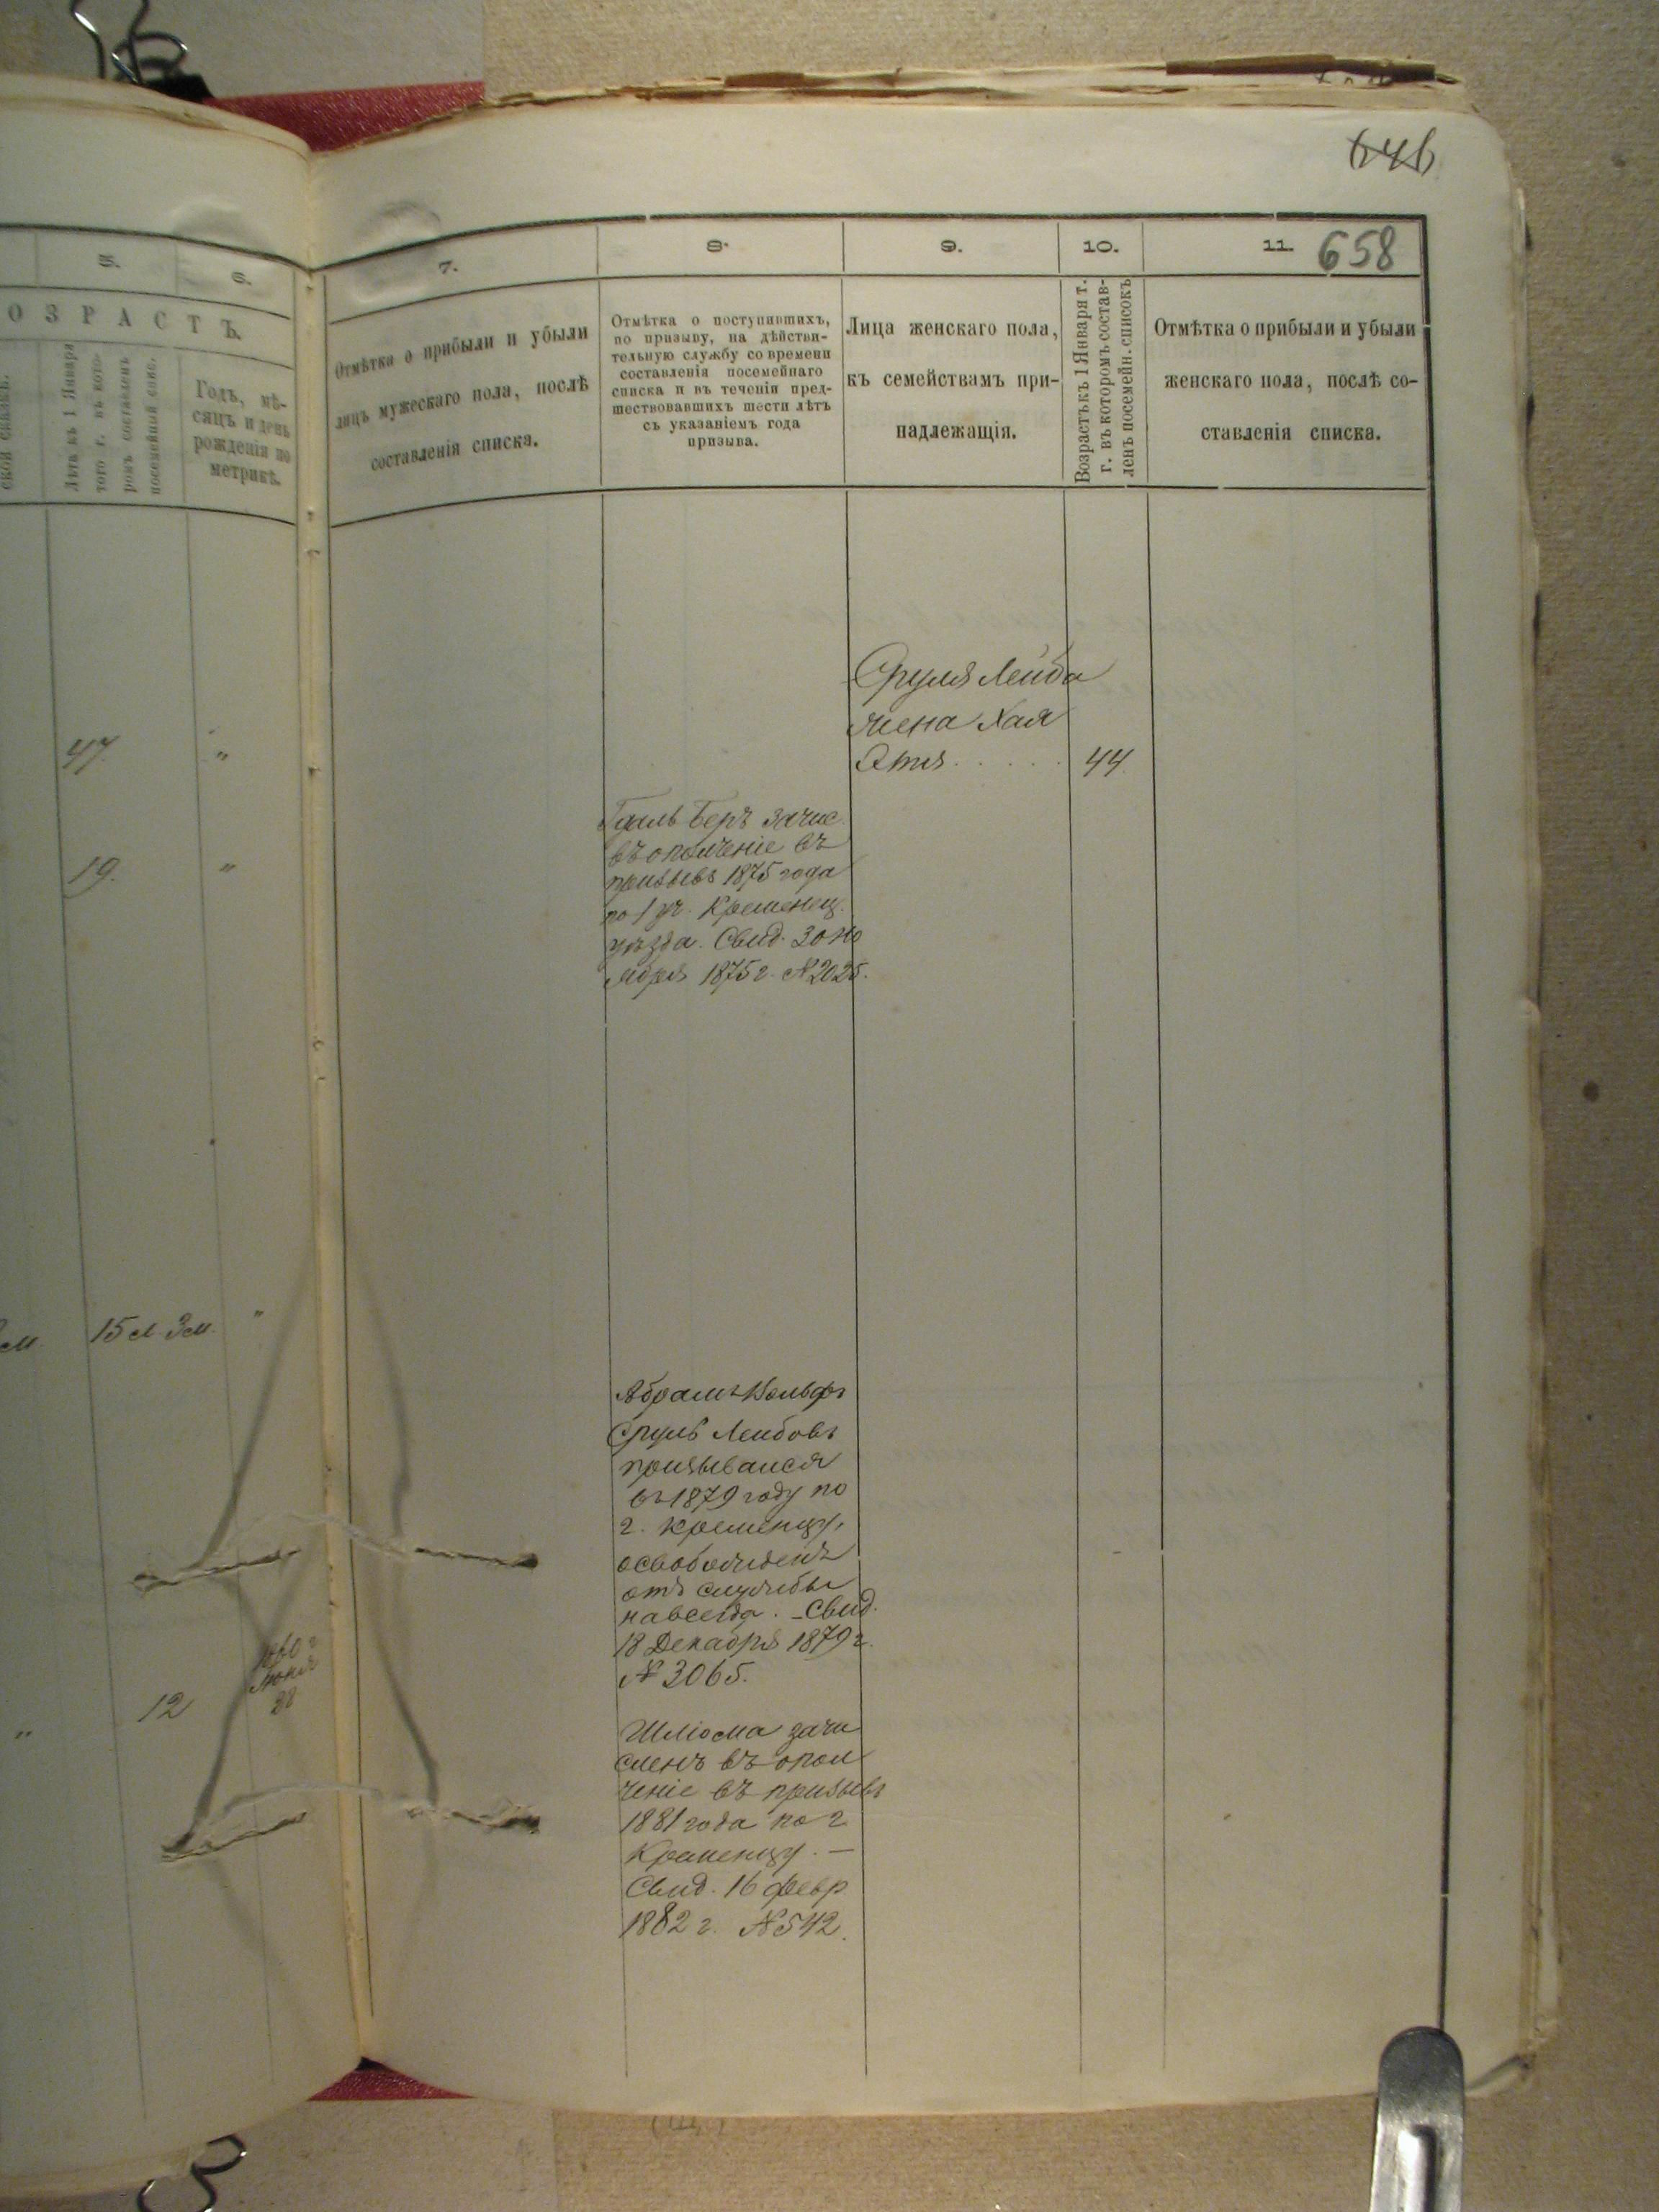 646
5.
6.
7.
8.
9.
10.
11.
658
ОЗРАСТЪ.
Лѣта къ 1 Января
того г. въ кото-
ромъ составленъ
посемейный спис.
Годъ, мѣ-
сяцъ и день
рожденія по
метрикѣ.
Отмѣтка о прибыли и убыли
лицъ мужескаго пола, послѣ
составленія списка.
Отмѣтка о поступившихъ,
по призыву, на дѣйстви-
тельную службу со времени
составленія посемейнаго
списка и въ теченіи пред-
шествовавшихъ шести лѣтъ
съ указаніемъ года
призыва.
Лица женскаго пола,
къ семействамъ при-
надлежащія.
Возрастъ къ 1 Января т.
г. въ которомъ состав-
ленъ посемейн. списокъ
Отмѣтка о прибыли и убыли
женскаго пола, послѣ со-
ставленія списка.
Сруля Лейба
жена Хая
Этя . . . . . 44
47. "
Гдаль Беръ зачис.
въ ополченіе въ
призывъ 1875 года
по 1 уч. Кременец.
уѣзда. Свид. 30 но
ября 1875 г. № 2025.
19. "
15 л. 3 м. "
Абрамъ Вольфъ
Сруль Лейбовъ
призывался
въ 1879 году по
г. Кременцу,
освобожденъ
отъ службы
навсегда. – Свид.
18 Декабря 1879 г.
№ 3065.
" 12
1860 г.
Шлiома зачи
сленъ въ опол
ченіе въ призывъ
1881 года по г.
Кременцу. –
Свид. 16 февр
1882 г. № 542.